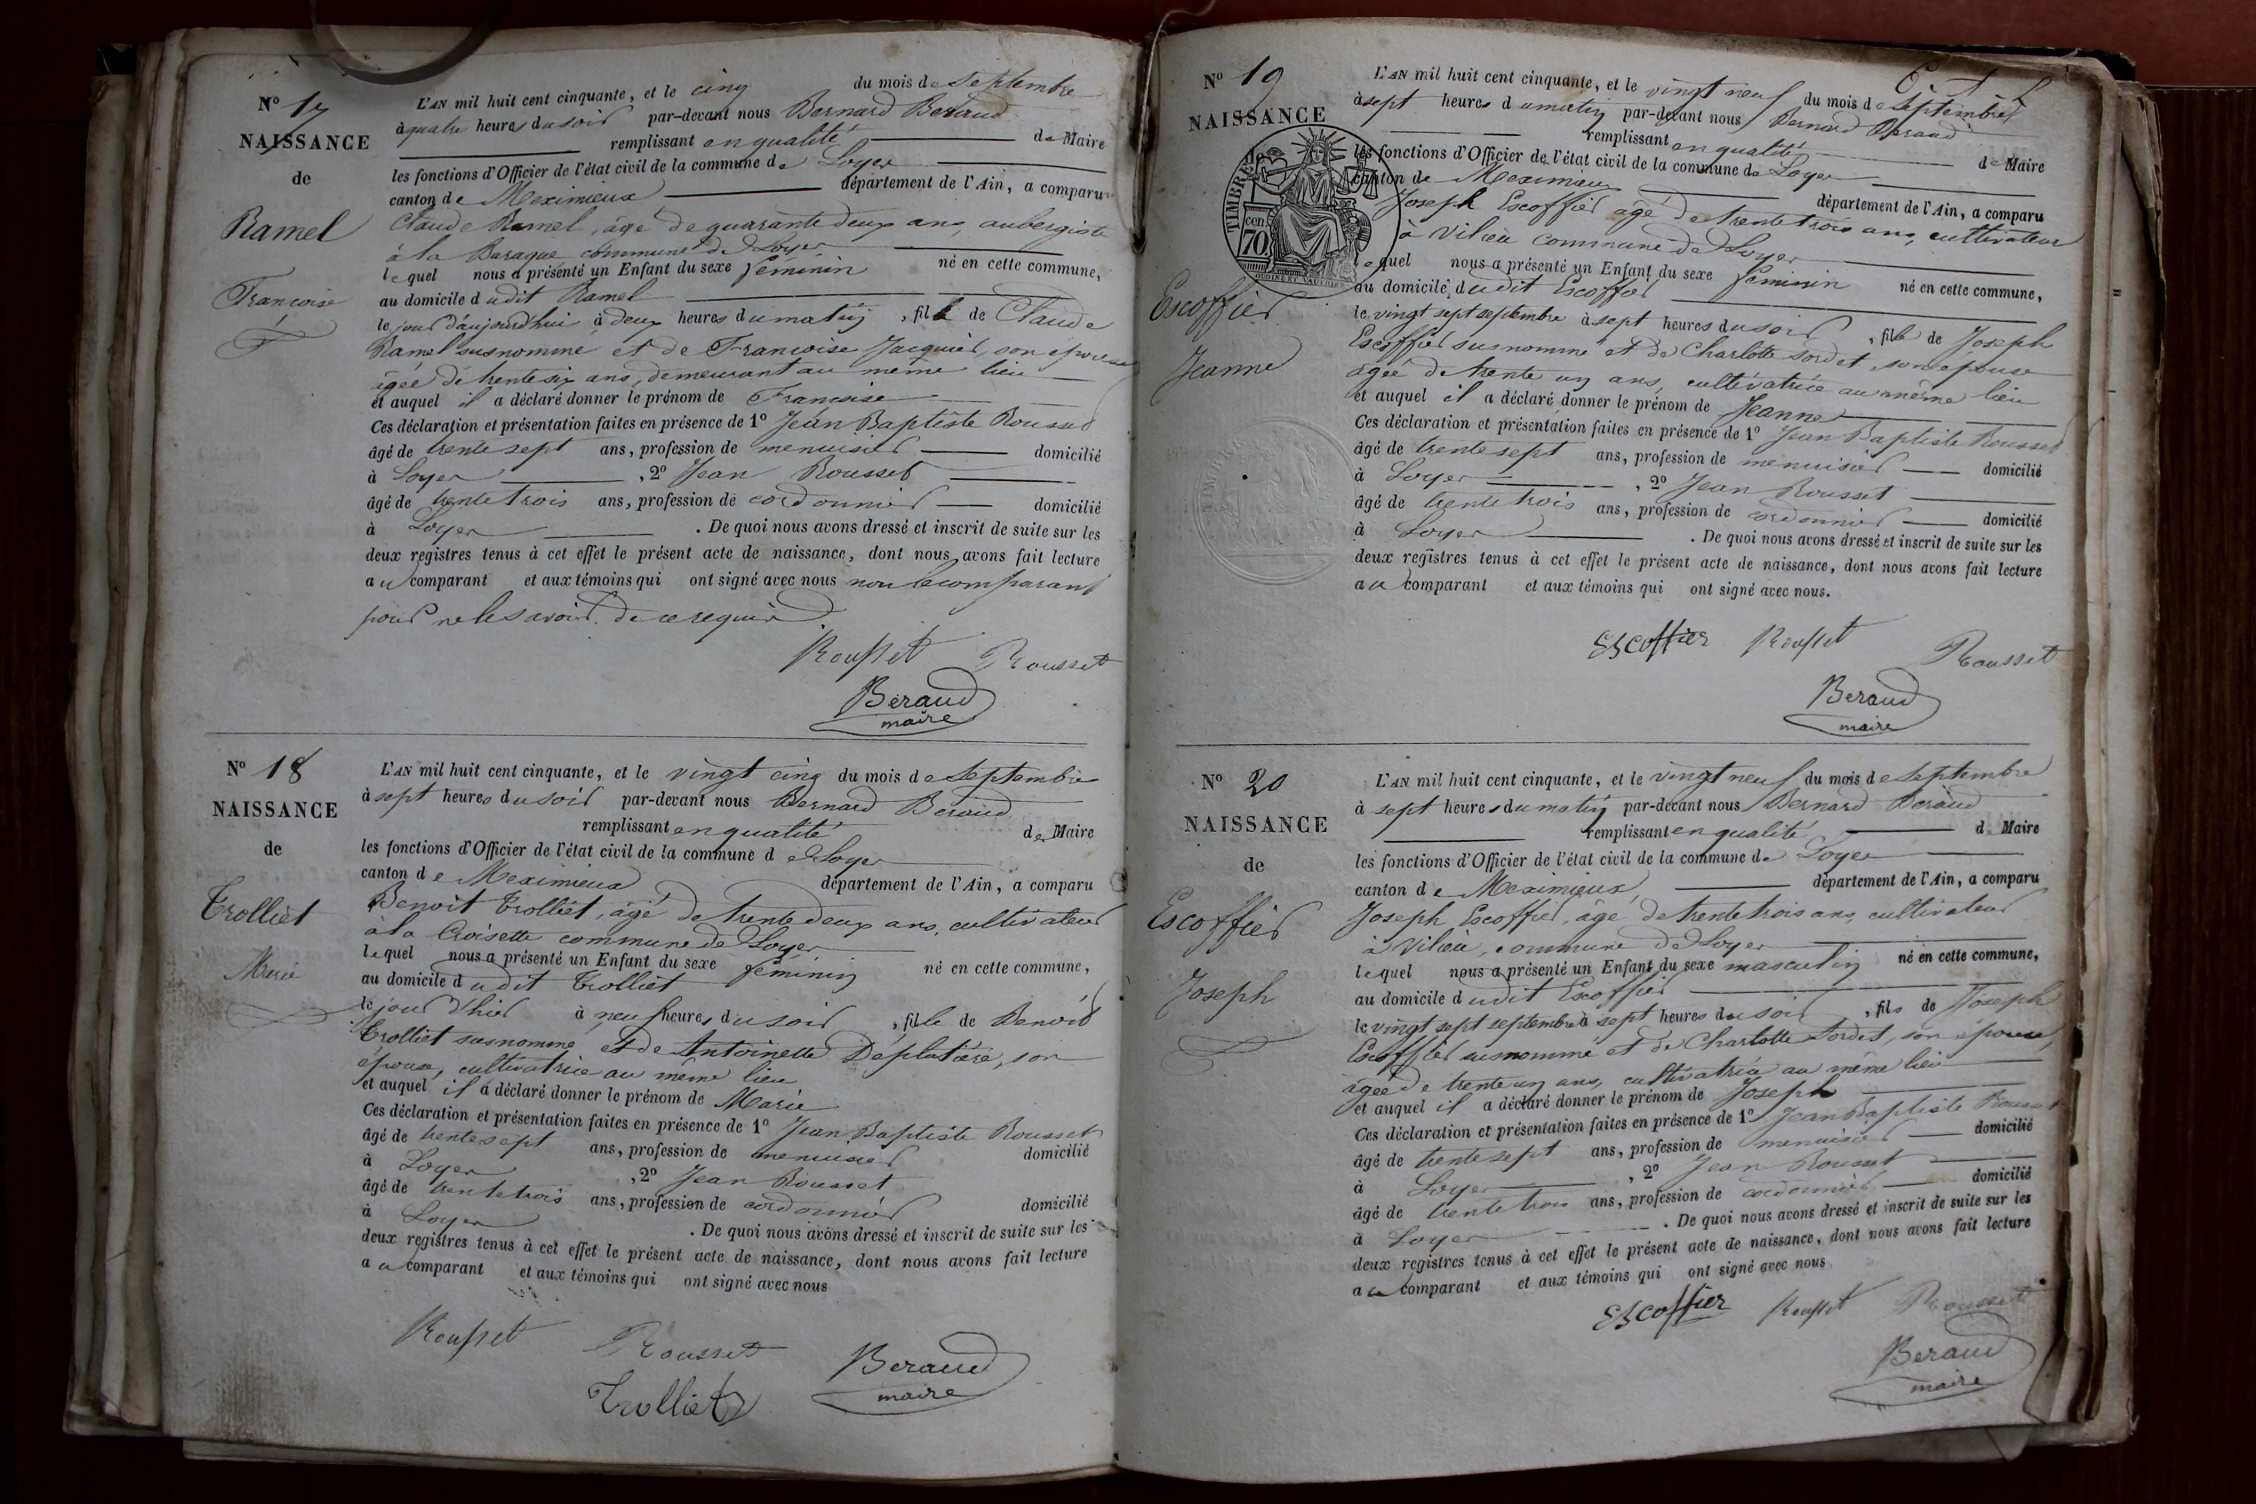 N° 17
NAISSANCE
de
Ramel
Françoise
L'AN mil huit cent cinquante, et le cinq du mois de Septembre
à quatre heures du soir par-devant nous Bernard Beraud
remplissant en qualité de Maire
les fonctions d'Officier de l'état civil de la commune de Loyer
canton de Meximieux département de l'Ain, a comparu
Claude Ramel, âgé de quarante deux ans, aubergiste
à la Baraque commune de Loyer
lequel nous a présenté un Enfant du sexe féminin né en cette commune,
au domicile dudit Ramel
le jour d'aujourdhui à deux heures du matin, fille de Claude
Ramel susnommé et de Françoise Jacquier, son épouse
âgée de trente six ans, demeurant au même lieu
et auquel il a déclaré donner le prénom de Francoise
Ces déclaration et présentation faites en présence de 1° Jean Baptiste Rousset
âgé de trente sept ans, profession de menuisier domicilié
à Loyer, 2° Jean Rousset
âgé de trente trois ans, profession de cordonnier domicilié
à Loyer. De quoi nous avons dressé et inscrit de suite sur les
deux registres tenus à cet effet le présent acte de naissance, dont nous avons fait lecture
au comparant et aux témoins qui ont signé avec nous non le comparant
pour ne le savoir de ce requis
Rousset Rousset
Beraud
maire
N° 18
NAISSANCE
de
Trolliet
Marie
L'AN mil huit cent cinquante, et le vingt cinq du mois de Septembre
à sept heures du soir par-devant nous Bernard Beraud
remplissant en qualité de Maire
les fonctions d'Officier de l'état civil de la commune de Loyer
canton de Meximieux département de l'Ain, a comparu
Benoit Trolliet, âgé de trente deux ans, cultivateur
à la Croisette commune de Loyer
lequel nous a présenté un Enfant du sexe féminin né en cette commune,
au domicile dudit Trolliet
le jour d'hier à neuf heures du soir, fille de Benoit
Trolliet susnommé et de Antoinette Déplatière, son
épouse, cultivatrice au même lieu
et auquel il a déclaré donner le prénom de Marie
Ces déclaration et présentation faites en présence de 1° Jean Baptiste Rousset
âgé de trente sept ans, profession de menuisier domicilié
à Loyer, 2° Jean Rousset
âgé de trente trois ans, profession de cordonnier domicilié
à Loyer. De quoi nous avons dressé et inscrit de suite sur les
deux registres tenus à cet effet le présent acte de naissance, dont nous avons fait lecture
au comparant et aux témoins qui ont signé avec nous
Rousset Rousset Beraud
maire
Trolliet
N° 19
NAISSANCE
TIMBRE
70 cen
Escoffier
Jeanne
L'AN mil huit cent cinquante, et le vingt neuf du mois de Septembre
à sept heures du matin par-devant nous Bernard Beraud
remplissant en qualité de Maire
les fonctions d'Officier de l'état civil de la commune de Loyer
canton de Meximieux département de l'Ain, a comparu
Joseph Escoffier âgé de trente trois ans, cultivateur
à Vilieu commune de Loyer
lequel nous a présenté un Enfant du sexe féminin né en cette commune,
au domicile dudit Escoffier
le vingt sept septembre à sept heures du soir, fille de Joseph
Escoffier susnommé et de Charlotte Sordet, son épouse
âgée de trente un ans, cultivatrice au même lieu
et auquel il a déclaré donner le prénom de Jeanne
Ces déclaration et présentation faites en présence de 1° Jean Baptiste Rousset
âgé de trente sept ans, profession de menuisier domicilié
à Loyer, 2° Jean Rousset
âgé de trente trois ans, profession de cordonnier domicilié
à Loyer. De quoi nous avons dressé et inscrit de suite sur les
deux registres tenus à cet effet le présent acte de naissance, dont nous avons fait lecture
au comparant et aux témoins qui ont signé avec nous.
Escoffier Rousset Rousset
Beraud
maire
N° 20
NAISSANCE
de
Escoffier
Joseph
L'AN mil huit cent cinquante, et le vingt neuf du mois de Septembre
à sept heures du matin par-devant nous Bernard Beraud
remplissant en qualité de Maire
les fonctions d'Officier de l'état civil de la commune de Loyer
canton de Meximieux, département de l'Ain, a comparu
Joseph Escoffier, âgé de trente trois ans, cultivateur
à Vilieu, commune de Loyer
lequel nous a présenté un Enfant du sexe masculin né en cette commune,
au domicile dudit Escoffier
le vingt sept septembre à sept heures du soir, fils de Joseph
Escoffier susnommé et de Charlotte Sordet, son épouse,
âgée de trente un ans, cultivatrice au même lieu
et auquel il a déclaré donner le prénom de Joseph
Ces déclaration et présentation faites en présence de 1° Jean Baptiste Rousset
âgé de trente sept ans, profession de menuisier domicilié
à Loyer, 2° Jean Rousset
âgé de trente trois ans, profession de cordonnier domicilié
à Loyer. De quoi nous avons dressé et inscrit de suite sur les
deux registres tenus à cet effet le présent acte de naissance, dont nous avons fait lecture
au comparant et aux témoins qui ont signé avec nous
Escoffier Rousset Rousset
Beraud
maire